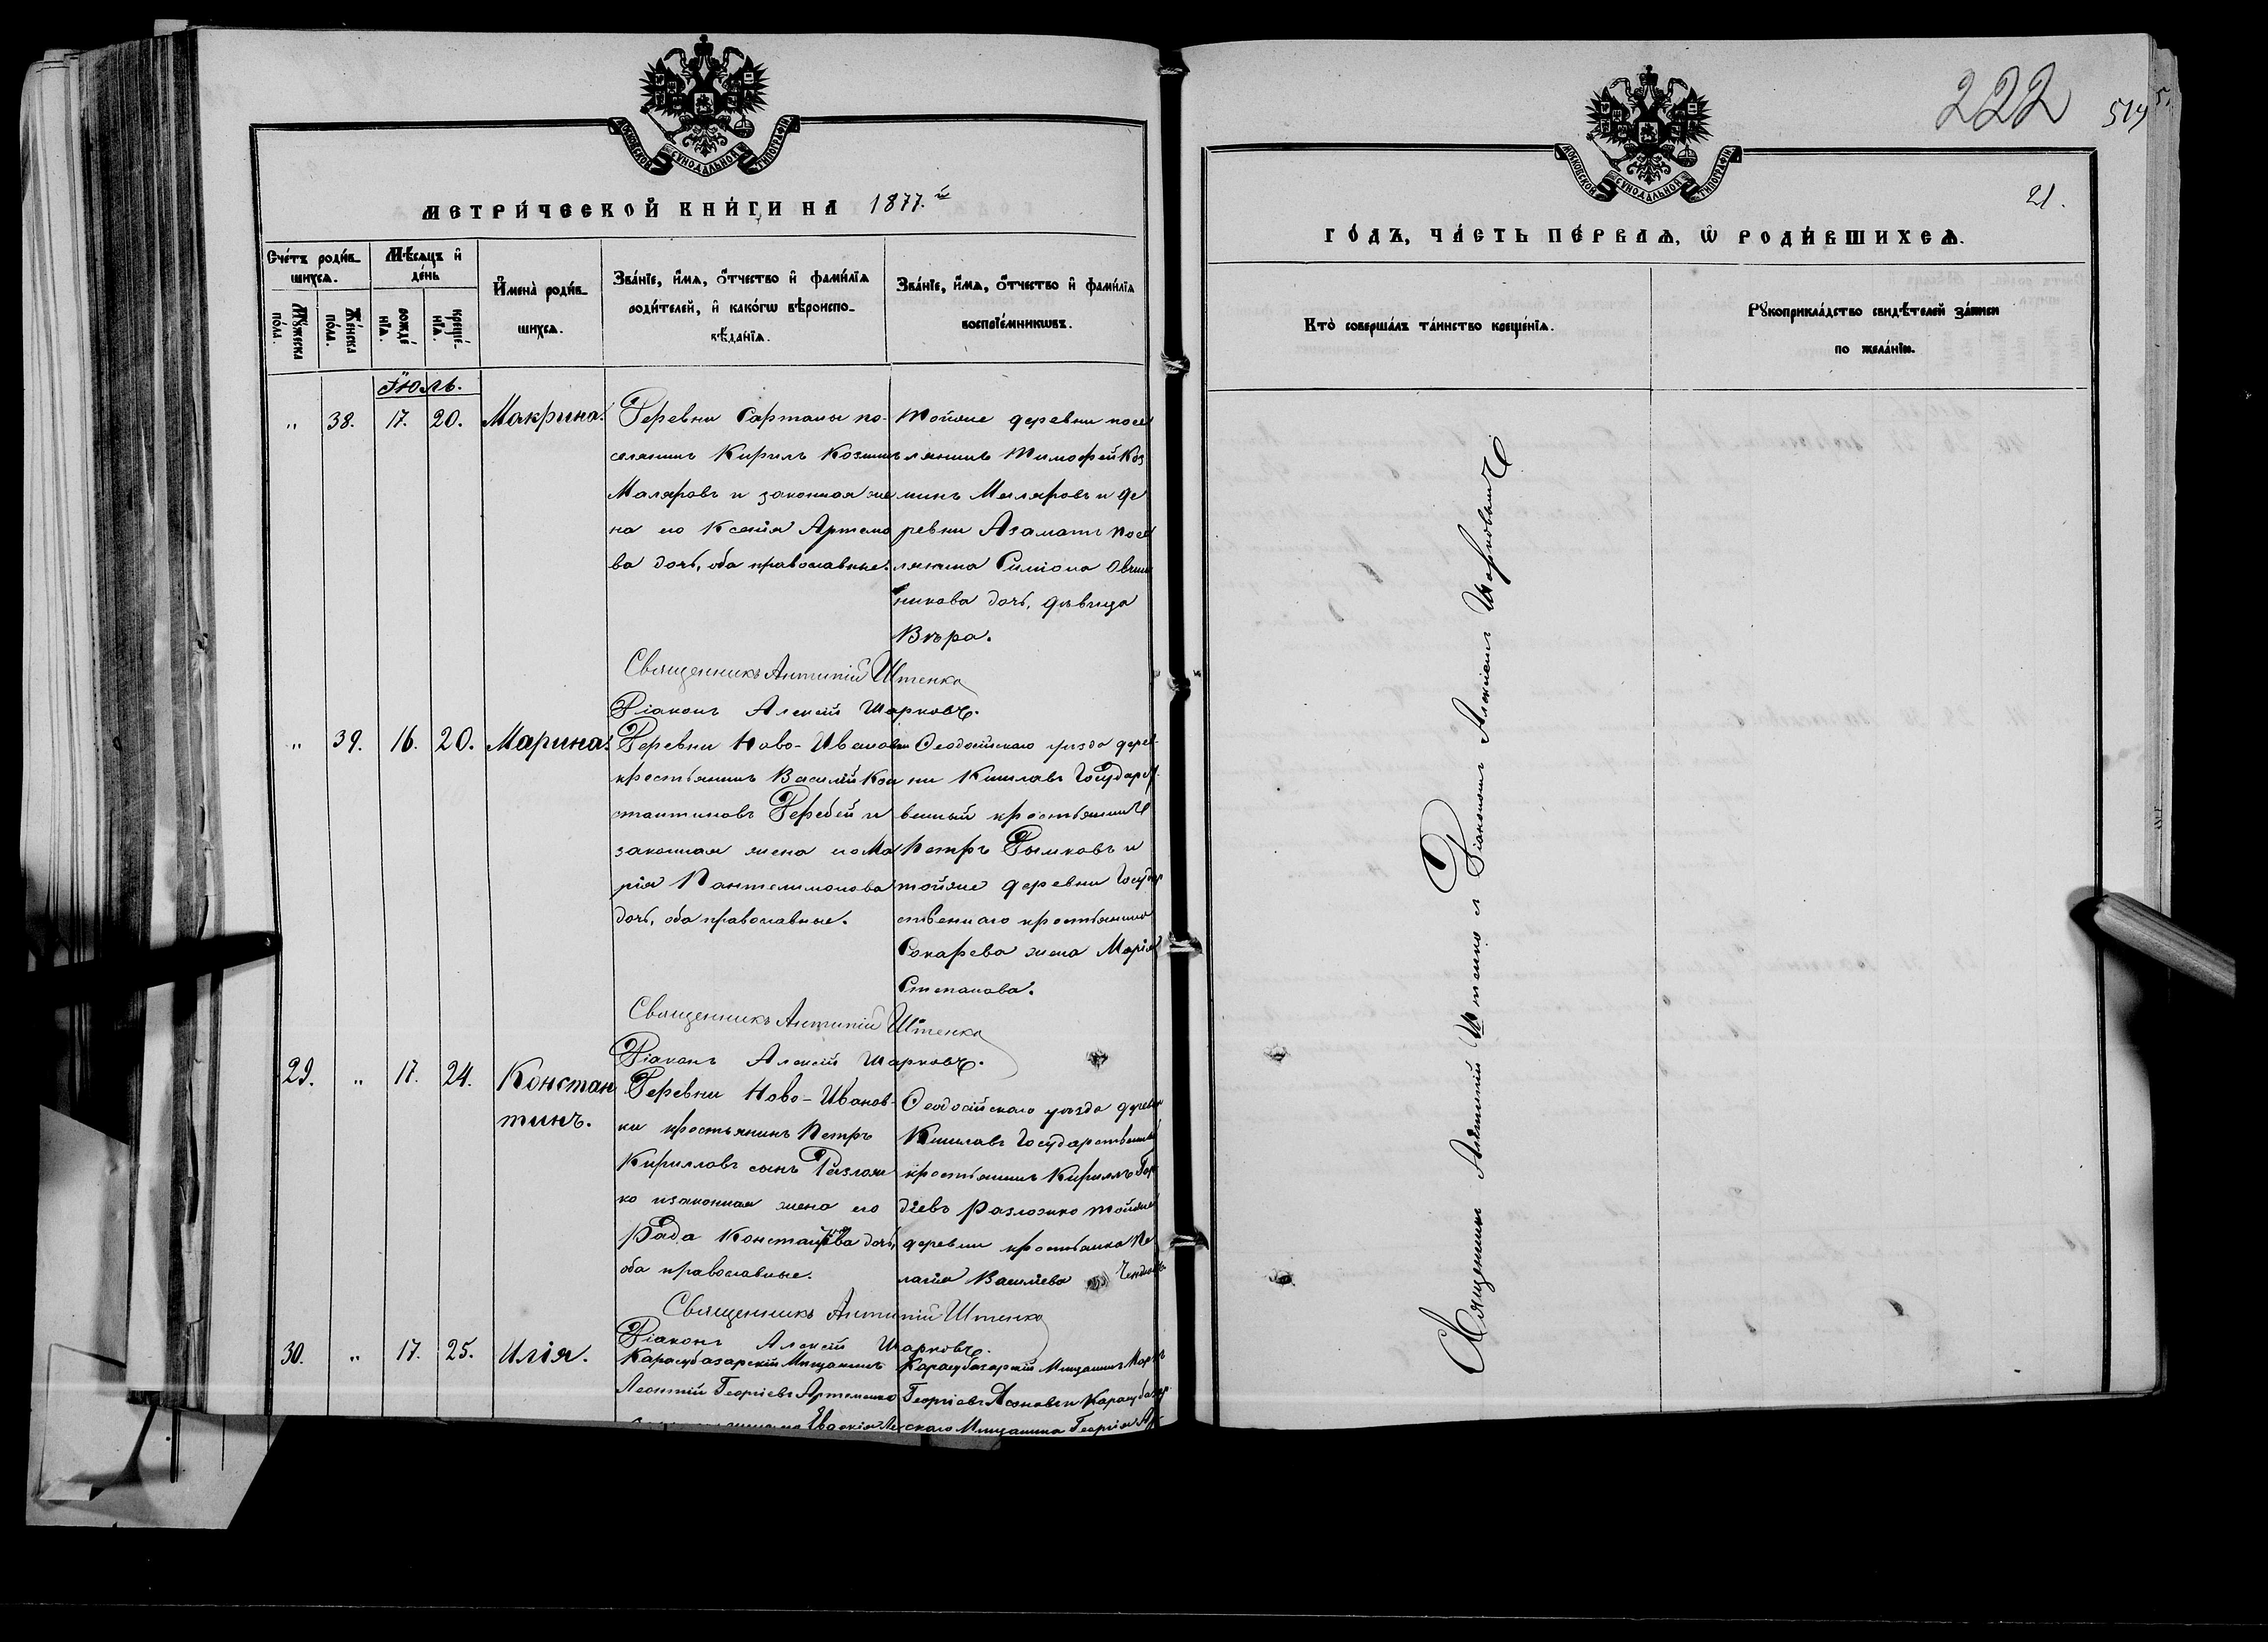 МОСКОВСКОЙ СѴНОДАЛЬНОЙ ТИПОГРАФІИ.
МЕТРИ́ЧЕСКОЙ КНИ́ГИ НА 1877.й
Сче́тъ роди́в-
шихсѧ.
Мѣ́сѧцъ и҆
де́нь
И҆мена̀ роди́в-
шихсѧ.
Зва́нїе, и҆́мѧ, ѻ҆́тчество и҆ фами́лїѧ
роди́телей, и҆ како́гѡ вѣроиспо-
вѣ́данїѧ.
Зва́нїе, и҆́мѧ, ѻ҆́тчество и҆ фами́лїѧ
воспрїе́мникѡвъ.
Мꙋ́жеска
по́ла.
Же́нска
по́ла.
рожде́
нїѧ.
креще́-
нїѧ.
Іюль.
" 38. 17. 20. Макрина.
Деревни Сартаны по-
селянинъ Кирилъ Козминъ
Маляровъ и законная же
на его Ксенія Артемо
ва дочь, оба православные.
Тойже деревни посе
лянинъ Тимофей Коз
минъ Маляровъ и де
ревни Азаматъ посе
лянина Симіона Овчин
никова дочь, дѣвица
Вѣра.
Священникъ Антипій Штенко
Діаконъ Алексій Шарковъ.
" 39. 16. 20. Марина.
Деревни Ново-Ивановки
крестьянинъ Василій Кон
стантиновъ Деребей и
законная жена его Ма
рія Пантелимонова
дочь, оба православные.
Ѳеодосійскаго уѣзда дерев-
ни Кишлавъ Государст
венный крестьянинъ
Петръ Дымковъ и
тойже деревни Государ
ственнаго крестьянина
Сокарева жена Марія
Степанова.
Священникъ Антипій Штенко
Діаконъ Алексій Шарковъ.
29. " 17. 24. Констан
тинъ.
Деревни Ново-Иванов-
ки крестьянинъ Петръ
Кирилловъ сынъ Разлож
ко и законная жена его
Рада Константинова дочь,
оба православные.
Ѳеодосійскаго уѣзда деревни
Кишлавъ Государственный
крестьянинъ Кириллъ Гор
діевъ Разложко тойже
деревни крестьянка Пе
лагія Василіева
Священникъ Антипій Штенко
Діаконъ Алексій Шарковъ.
30. " 17. 25. Илія.
Карасубазарскій Мѣщанинъ
Леонтій Георгіевъ Артеменко
жена его Евдокія
Карасубазарскій Мѣщанинъ
Георгіевъ и Карасубазар
скаго Мѣщанина Георгія
222
519
21.
МОСКОВСКОЙ СѴНОДАЛЬНОЙ ТИПОГРАФІИ.
ГО́ДЪ, ЧА́СТЬ ПЕ́РВАѦ, Ѡ҆ РОДИ́ВШИХСѦ.
Кто̀ соверша́лъ та́инство креще́нїѧ.
Рꙋкоприкла́дство свидѣ́телей за́писи
по жела́нїю.
Священникъ Антипій Штенко съ Діакономъ Алексіемъ Шарковымъ